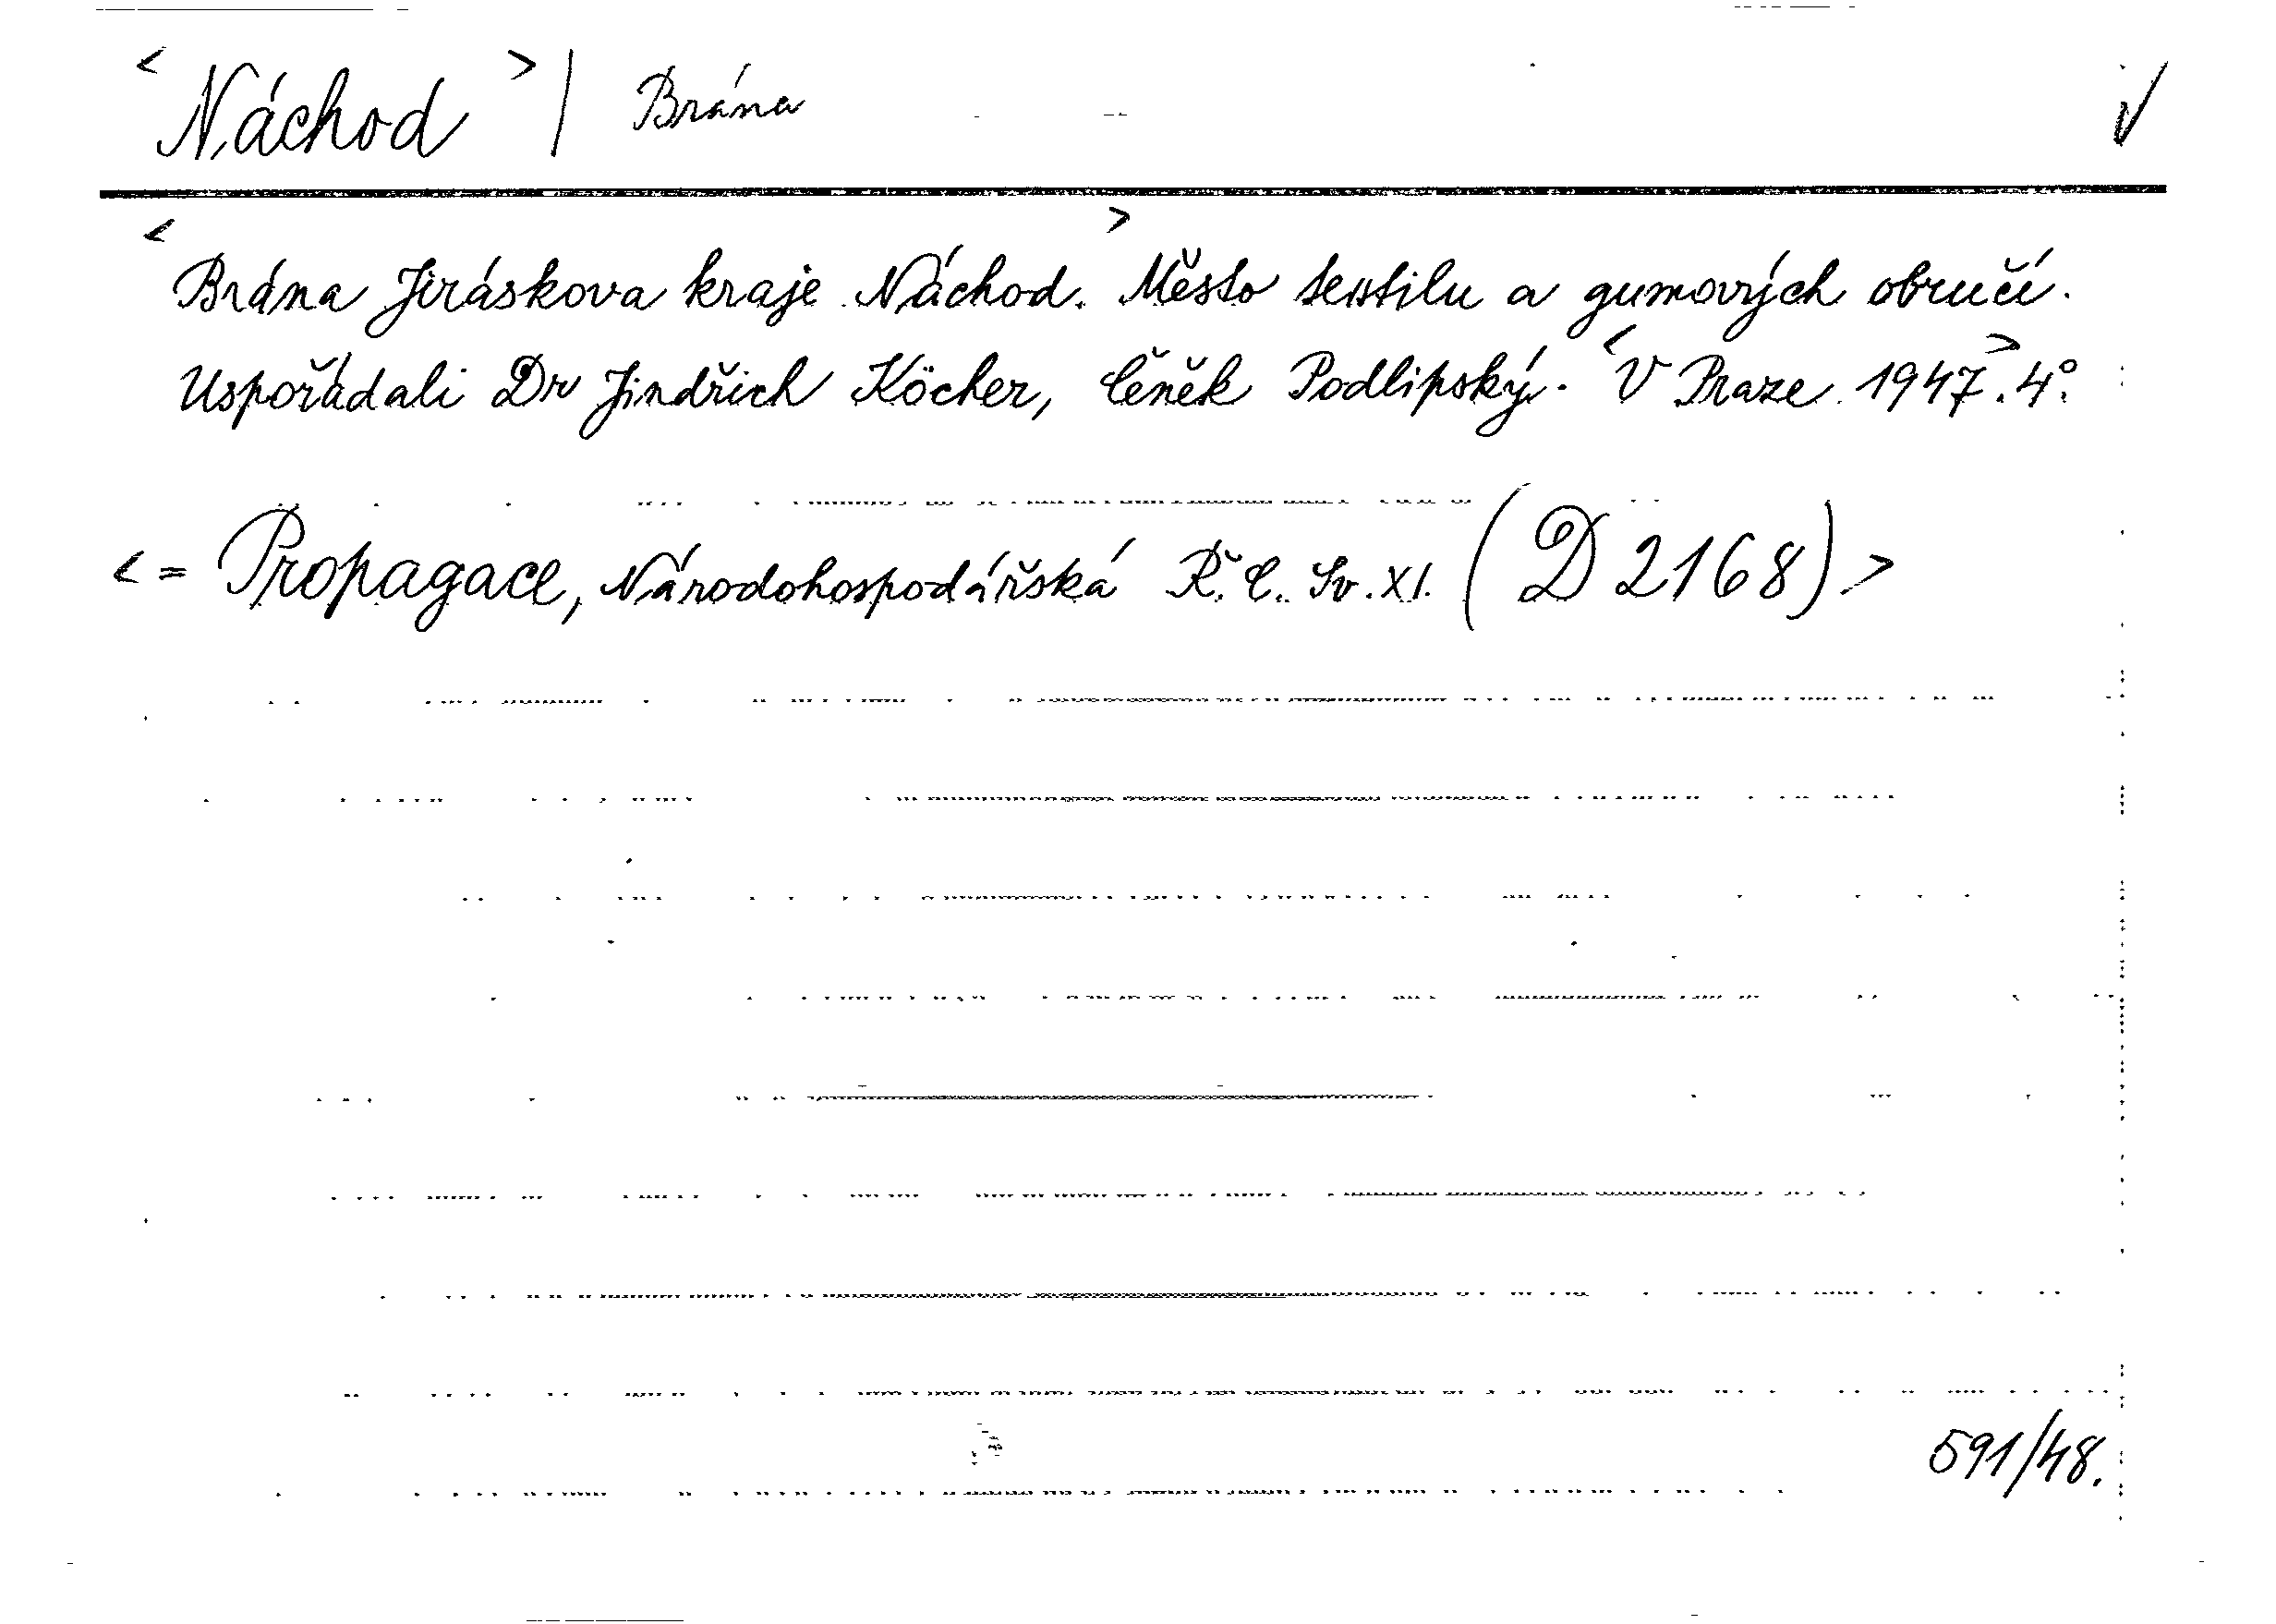 < Náchod > | Brána √
< Brána Jiráskova kraje Náchod. > Město textilu a gumových obručí.
Uspořádali Dr Jindřich Köcher, Čeněk Podlipský. < V Praze 1947. > 4°.
< = Propagace, Národohospodářská Ř. C. Sv. XI. (D 2168) >
591/48.